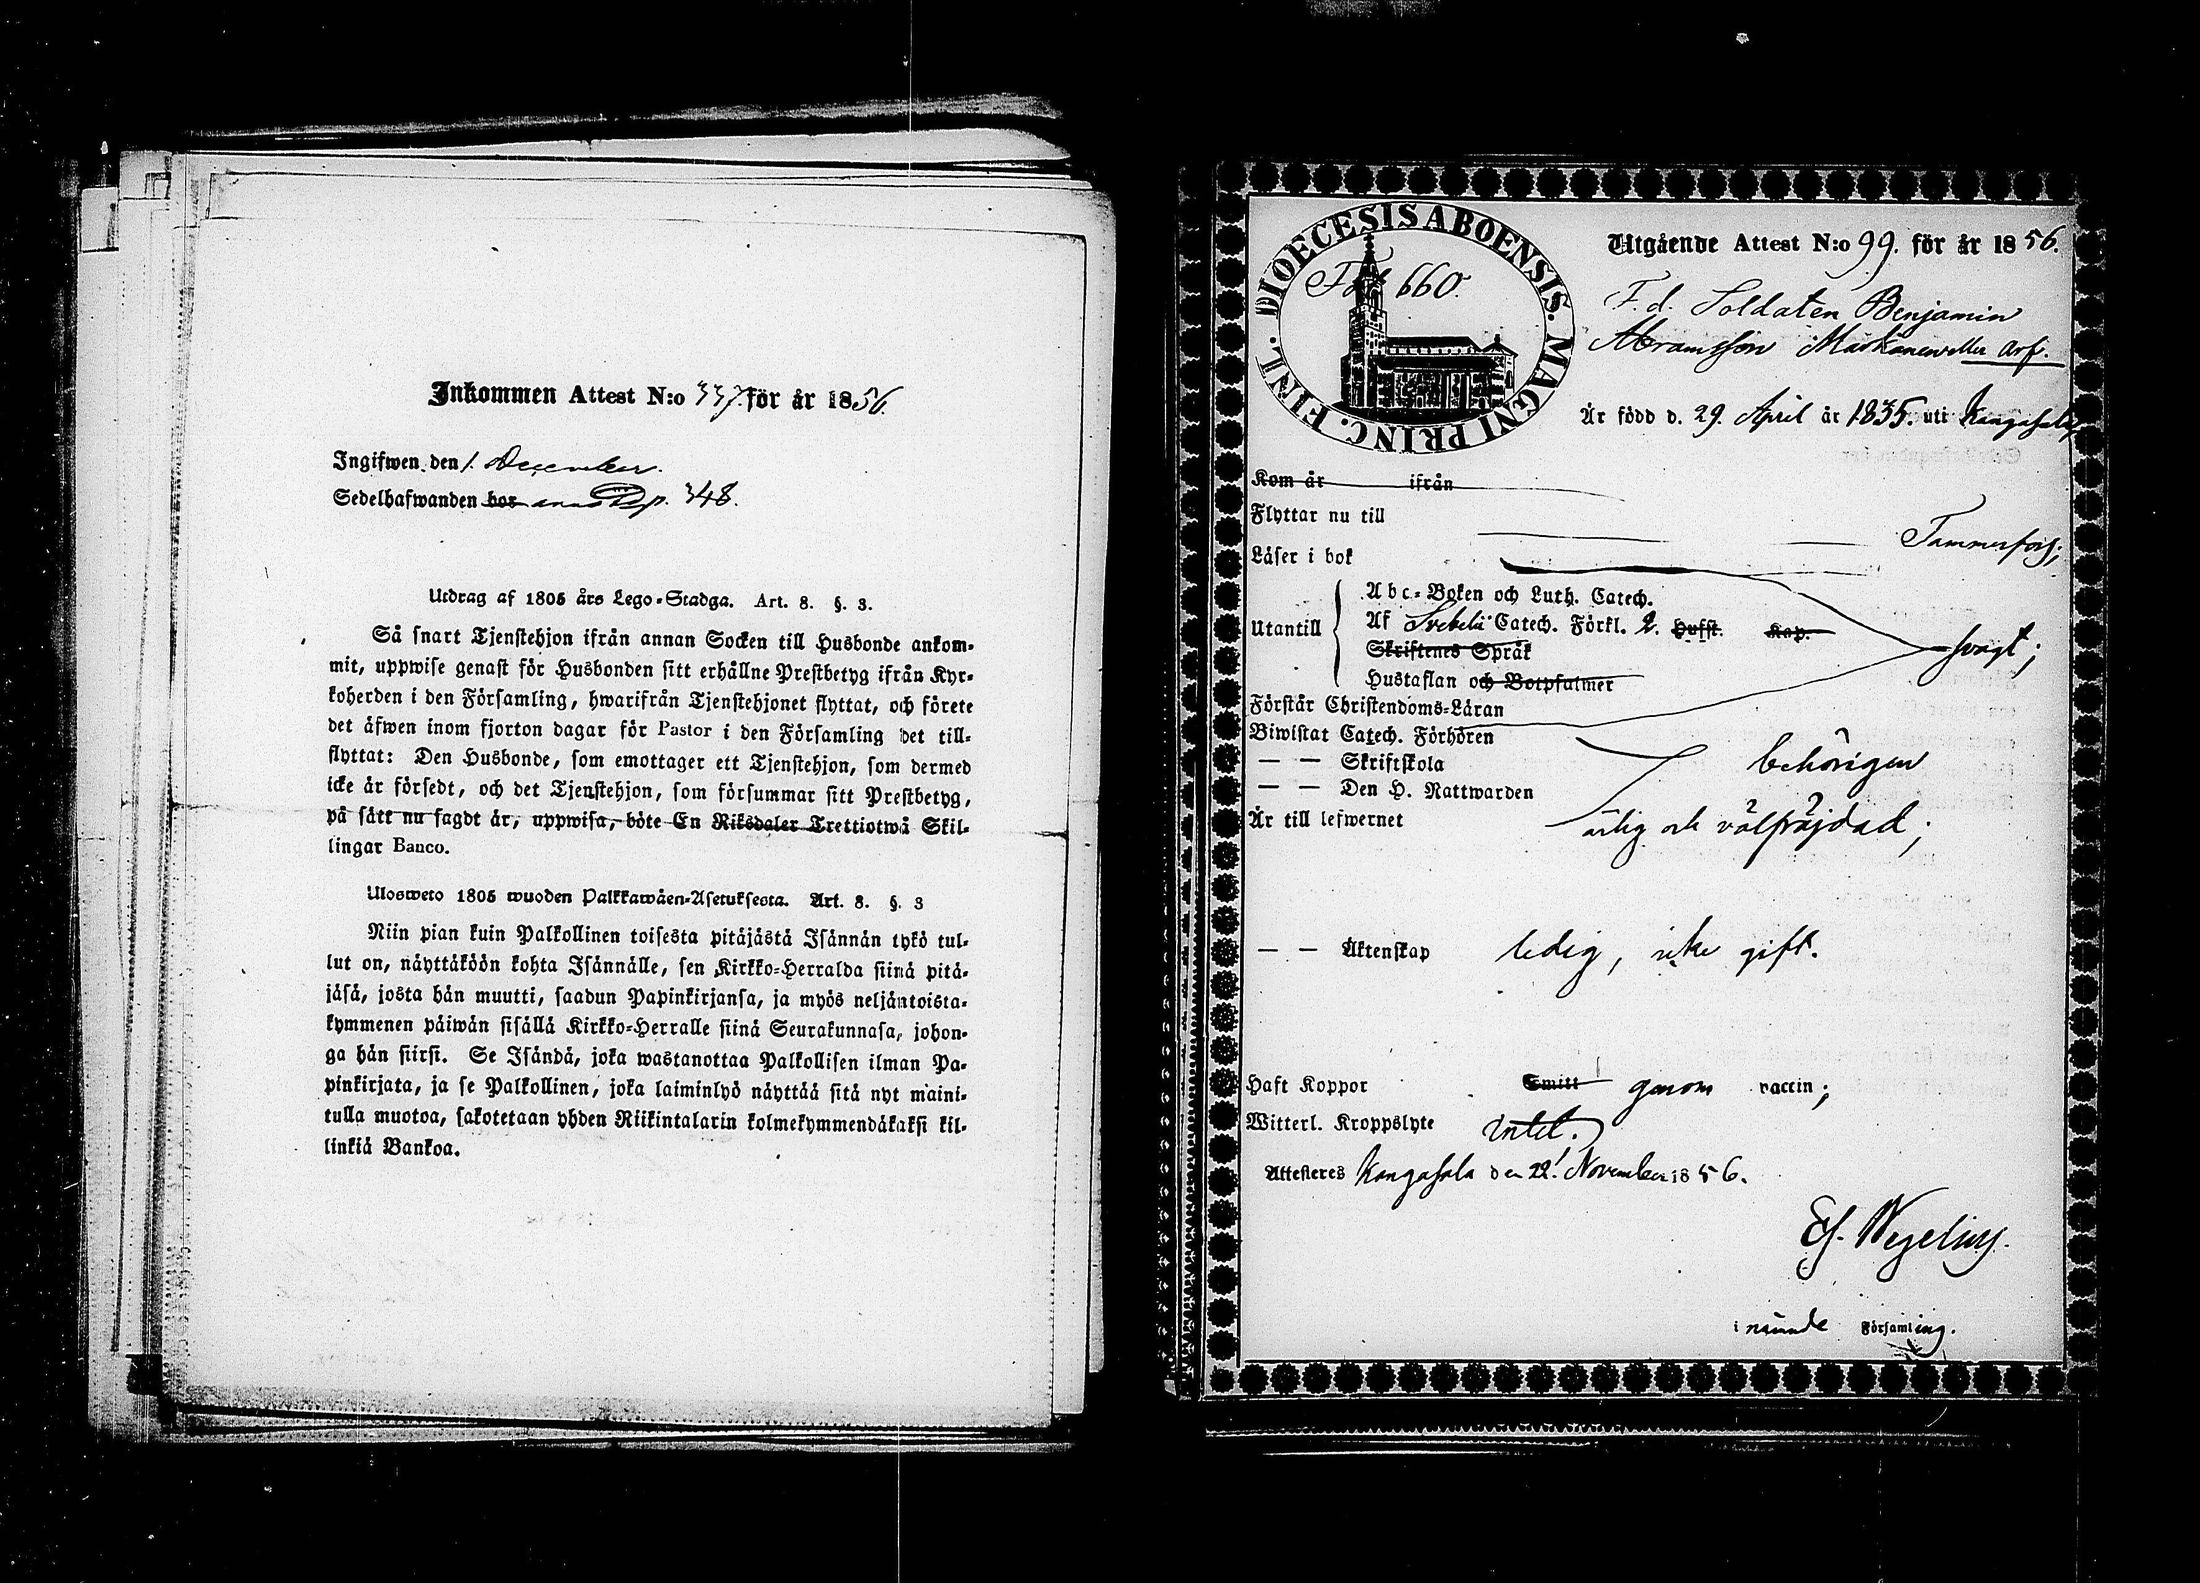 Inkommen Attest N:o 337. för år 1856.
Ingifwen den 1. December.
Sedelhafwanden bor annot. p. 348.
Utdrag af 1805 års Lego-Stadga. Art. 8. §. 3.
Så snart Tjenstehjon ifrån annan Socken till Husbonde ankom-
mit, uppwise genast för Husbonden sitt erhållne Prestbetyg ifrån Kyr-
koherden i den Församling, hwarifrån Tjenstehjonet flyttat, och förete
det äfwen inom fjorton dagar för Pastor i den Församling det till-
flyttat: Den Husbonde, som emottager ett Tjenstehjon, som dermed
icke är försedt, och det Tjenstehjon, som försummar sitt Prestbetyg,
på sätt nu sagdt är, uppwisa, böte En Riksdaler Trettiotwå Skil-
lingar Banco.
Ulosweto 1805 wuoden Palkkawäen-Asetuksesta. Art. 8. §. 3
Niin pian kuin Palkollinen toisesta pitäjästä Isännän tykö tul-
lut on, näyttäköön kohta Isännälle, sen Kirkko-Herralda siinä pitä-
jäsä, josta hän muutti, saadun Papinkirjansa, ja myös neljäntoista-
kymmenen päiwän sisällä Kirkko-Herralle siinä Seurakunnasa, johon-
ga hän siirsi. Se Isändä, joka wastanottaa Palkollisen ilman Pa-
pinkirjata, ja se Palkollinen, joka laiminlyö näyttää sitä nyt maini-
tulla muotoa, sakotetaan yhden Riikintalarin kolmekymmendäkaksi kil-
linkiä Bankoa.
DIOECESIS ABOENSIS. MAGNI PRINC. FINL.
Fol 660.
Utgående Attest N:o 99. för år 1856.
F.d. Soldaten Benjamin
Abramsson Markanen eller Arf.
Är född d. 29. April år 1835. uti Kangasala
Kom år ifrån
Flyttar nu till Tammerfors;
Läser i bok
Utantill
Abc-Boken och Luth. Catech.
Af Svebelii Catech. Förkl. 2. Hufst. Kap.
Skriftenes Språk
Hustaflan och Botpsalmer
svagt;
Förstår Christendoms-Läran
Biwistat Catech. Förhören
— — Skriftskola behörigen
— — Den H. Nattwarden
Är till lefwernet ärlig och välfräjdad;
— — Äktenskap ledig, icke gift.
Haft Koppor Smitt genom vaccin;
Witterl. Kroppslyte intet.
Attesteres Kangasala den 22! November 1856.
Ef. Wegelius.
i nämnde Församling.